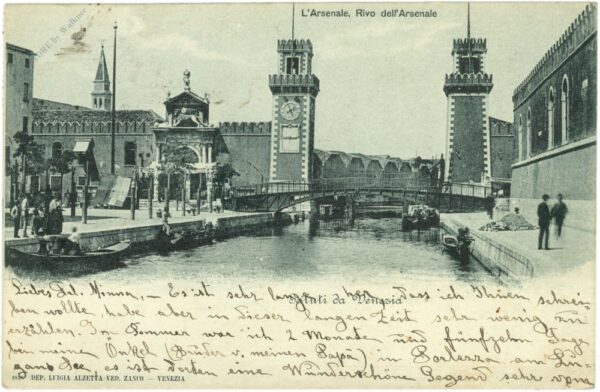 L'Arsenale, Rivo dell'Arsenale
Saluti da Venezia
Liebes Frl. Minna, – Es ist sehr lange her, dass ich Ihnen schrei-
ben wollte, habe aber in dieser langen Zeit sehr wenig zu
erzählen. Im Sommer war ich 2 Monate und fünfzehn Tage
bei meine Onkel (Bruder v. meinen Papa) in Porlezza am Lu-
gano See, es ist dorten eine Wunderschöne Gegend sehr
DEP. LUIGIA ALZETTA VED. ZANCO — VENEZIA